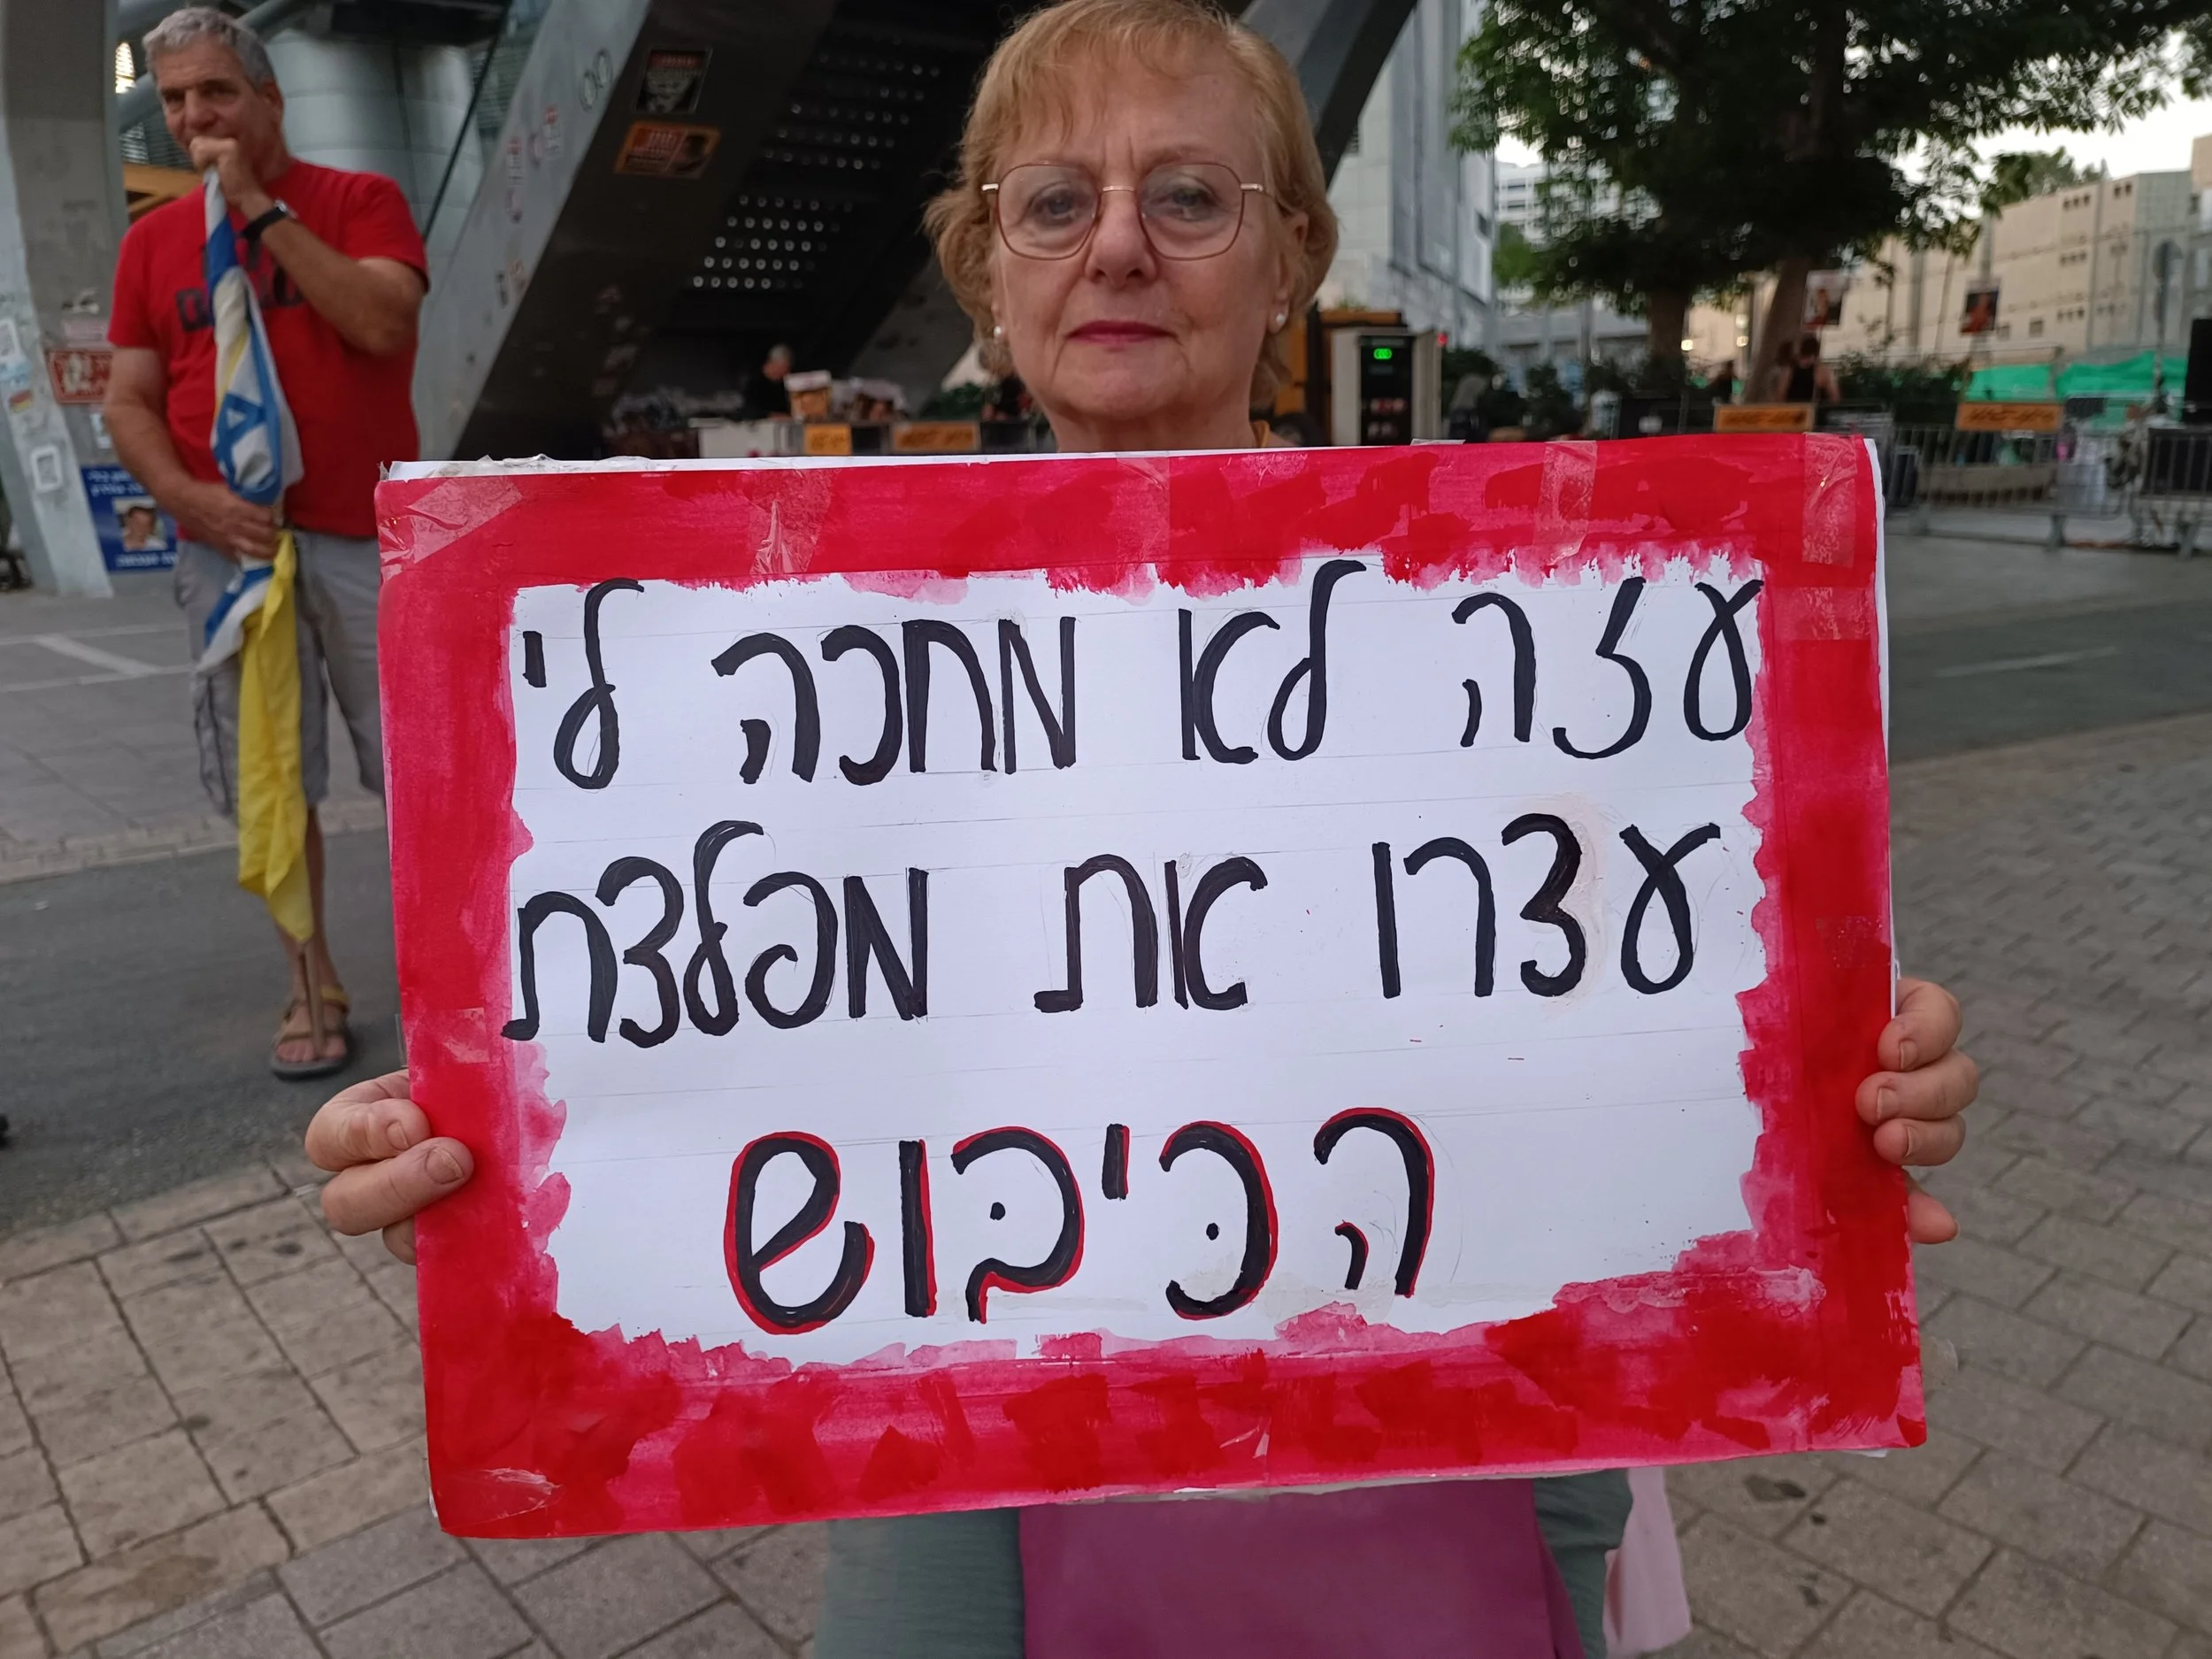 עזה לא מחכה לי
עצרו את מפלצת
הכיבוש